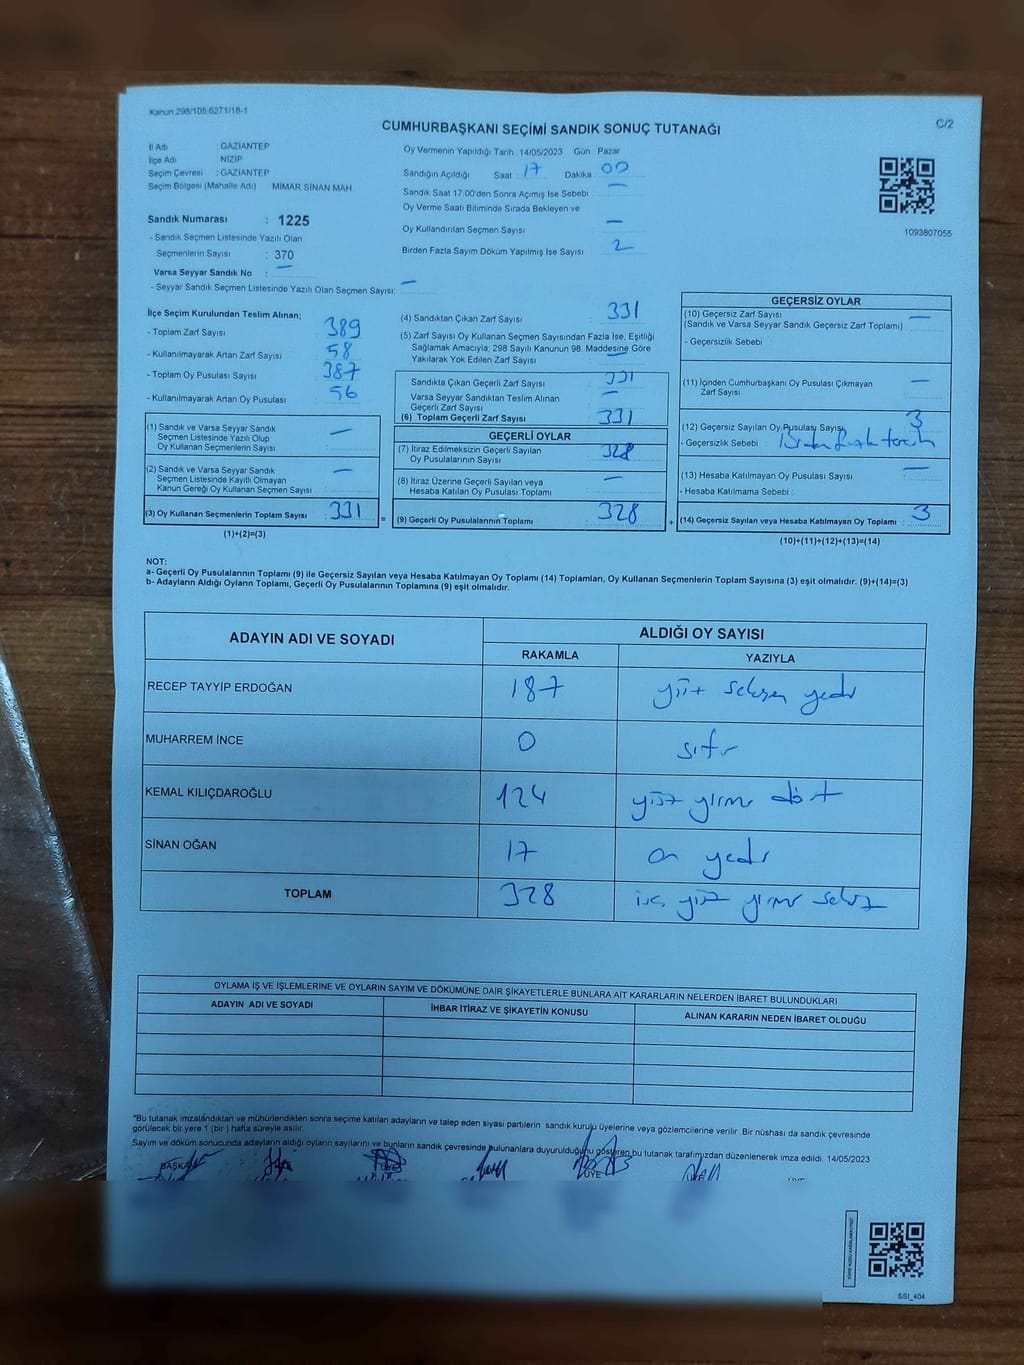 Kanun 298/105;6271/18-1
C/2
CUMHURBAŞKANI SEÇİMİ SANDIK SONUÇ TUTANAĞI
İl Adı : GAZİANTEP
İlçe Adı NİZİP
Seçim Çevresi : GAZİANTEP
Seçim Bölgesi (Mahalle Adı) MİMAR SİNAN MAH
Sandık Numarası : 1225
- Sandık Seçmen Listesinde Yazılı Olan
Seçmenlerin Sayısı : 370
Varsa Seyyar Sandık No : —
- Seyyar Sandık Seçmen Listesinde Yazılı Olan Seçmen Sayısı: —
Oy Vermenin Yapıldığı Tarih : 14/05/2023 Gün : Pazar
Sandığın Açıldığı Saat : 17 Dakika : 00
Sandık Saat 17.00'den Sonra Açılmış İse Sebebi : —
Oy Verme Saati Bitiminde Sırada Bekleyen ve
Oy Kullandırılan Seçmen Sayısı —
Birden Fazla Sayım Döküm Yapılmış İse Sayısı : 2
1093807055
İlçe Seçim Kurulundan Teslim Alınan;
- Toplam Zarf Sayısı : 389
- Kullanılmayarak Artan Zarf Sayısı : 58
- Toplam Oy Pusulası Sayısı : 387
- Kullanılmayarak Artan Oy Pusulası : 56
(1) Sandık ve Varsa Seyyar Sandık
Seçmen Listesinde Yazılı Olup
Oy Kullanan Seçmenlerin Sayısı : —
(2) Sandık ve Varsa Seyyar Sandık
Seçmen Listesinde Kayıtlı Olmayan
Kanun Gereği Oy Kullanan Seçmen Sayısı : —
(3) Oy Kullanan Seçmenlerin Toplam Sayısı : 331
(1)+(2)=(3)
(4) Sandıktan Çıkan Zarf Sayısı : 331
(5) Zarf Sayısı Oy Kullanan Seçmen Sayısından Fazla İse, Eşitliği
Sağlamak Amacıyla, 298 Sayılı Kanunun 98. Maddesine Göre
Yakılarak Yok Edilen Zarf Sayısı : —
Sandıkta Çıkan Geçerli Zarf Sayısı : 331
Varsa Seyyar Sandıktan Teslim Alınan
Geçerli Zarf Sayısı : —
(6) Toplam Geçerli Zarf Sayısı : 331
GEÇERLİ OYLAR
(7) İtiraz Edilmeksizin Geçerli Sayılan
Oy Pusulalarının Sayısı : 328
(8) İtiraz Üzerine Geçerli Sayılan veya
Hesaba Katılan Oy Pusulası Toplamı : —
= (9) Geçerli Oy Pusulalarının Toplamı : 328
GEÇERSİZ OYLAR
(10) Geçersiz Zarf Sayısı
(Sandık ve Varsa Seyyar Sandık Geçersiz Zarf Toplamı) : —
- Geçersizlik Sebebi :
(11) İçinden Cumhurbaşkanı Oy Pusulası Çıkmayan
Zarf Sayısı : —
(12) Geçersiz Sayılan Oy Pusulası Sayısı : 3
- Geçersizlik Sebebi : Birden fazla tercih
(13) Hesaba Katılmayan Oy Pusulası Sayısı : —
- Hesaba Katılmama Sebebi :
+ (14) Geçersiz Sayılan veya Hesaba Katılmayan Oy Toplamı : 3
(10)+(11)+(12)+(13)=(14)
NOT:
a- Geçerli Oy Pusulalarının Toplamı (9) ile Geçersiz Sayılan veya Hesaba Katılmayan Oy Toplamı (14) Toplamları, Oy Kullanan Seçmenlerin Toplam Sayısına (3) eşit olmalıdır. (9)+(14)=(3)
b- Adayların Aldığı Oyların Toplamı, Geçerli Oy Pusulalarının Toplamına (9) eşit olmalıdır.
ADAYIN ADI VE SOYADI
ALDIĞI OY SAYISI
RAKAMLA YAZIYLA
RECEP TAYYİP ERDOĞAN 187 yüz seksen yedi
MUHARREM İNCE 0 sıfır
KEMAL KILIÇDAROĞLU 124 yüz yirmi dört
SİNAN OĞAN 17 on yedi
TOPLAM 328 üç yüz yirmi sekiz
OYLAMA İŞ VE İŞLEMLERİNE VE OYLARIN SAYIM VE DÖKÜMÜNE DAİR ŞİKAYETLERLE BUNLARA AİT KARARLARIN NELERDEN İBARET BULUNDUKLARI
ADAYIN ADI VE SOYADI İHBAR İTİRAZ VE ŞİKAYETİN KONUSU ALINAN KARARIN NEDEN İBARET OLDUĞU
*Bu tutanak imzalandıktan ve mühürlendikten sonra seçime katılan adayların ve talep eden siyasi partilerin sandık kurulu üyelerine veya gözlemcilerine verilir. Bir nüshası da sandık çevresinde
görülecek bir yere 1 (bir) hafta süreyle asılır.
Sayım ve döküm sonucunda adayların aldığı oyların sayılarını ve bunların sandık çevresinde bulunanlara duyurulduğunu gösteren bu tutanak tarafımızdan düzenlenerek imza edildi. 14/05/2023
BAŞKAN ÜYE ÜYE ÜYE ÜYE
SSI_404